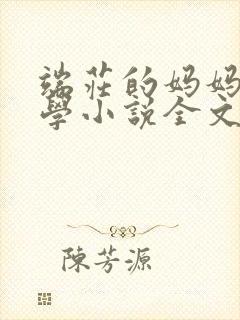 端莊的妈妈
學小說全文
陳芳源